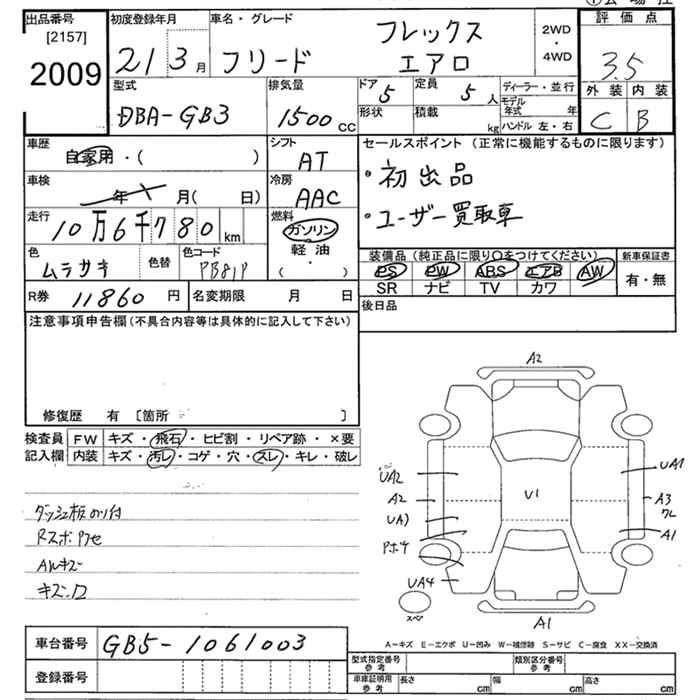 出品番号
[2157]
2009
初度登録年月
21 3月
車名・グレード
フリード
フレックス
エアロ
2WD
・
4WD
評価点
3.5
外装 内装
C B
型式
DBA-GB3
排気量
1500 cc
ドア 5
定員 5 人
形状
積載 kg
ディーラー・並行
モデル年式 年
ハンドル 左・右
車歴
自家用・( )
シフト
AT
車検
年 X 月( 日)
冷房
AAC
走行
10万6千780 km
燃料
ガソリン
軽油
・
( )
色
ムラサキ
色替
色コード
PB81P
R券 11860 円
名変期限 月 日
セールスポイント (正常に機能するものに限ります)
・初出品
・ユーザー買取車
装備品 (純正品に限り○をつけてください)
新車保証書
PS PW ABS エアB AW
有・無
SR ナビ TV カワ
後日品
注意事項申告欄 (不具合内容等は具体的に記入して下さい)
修復歴 有 〔箇所 〕
検査員
記入欄
FW キズ・飛石・ヒビ割・リペア跡・×要
内装 キズ・汚レ・コゲ・穴・スレ・キレ・破レ
ダッシュ板のり付
Rスポハゲ
AWキズ
キズ凹
A2
UA2
UA1
A2
U1
A3
クレ
UA1
A1
Pホチ
UA4
スペア
A1
A-キズ E-エクボ U-凹み W-補修跡 S-サビ C-腐食 XX-交換済
車台番号 GB5-1061003
登録番号
型式指定番号
参考
類別区分番号
参考
車庫証明用
参考
長さ cm
幅 cm
高さ cm